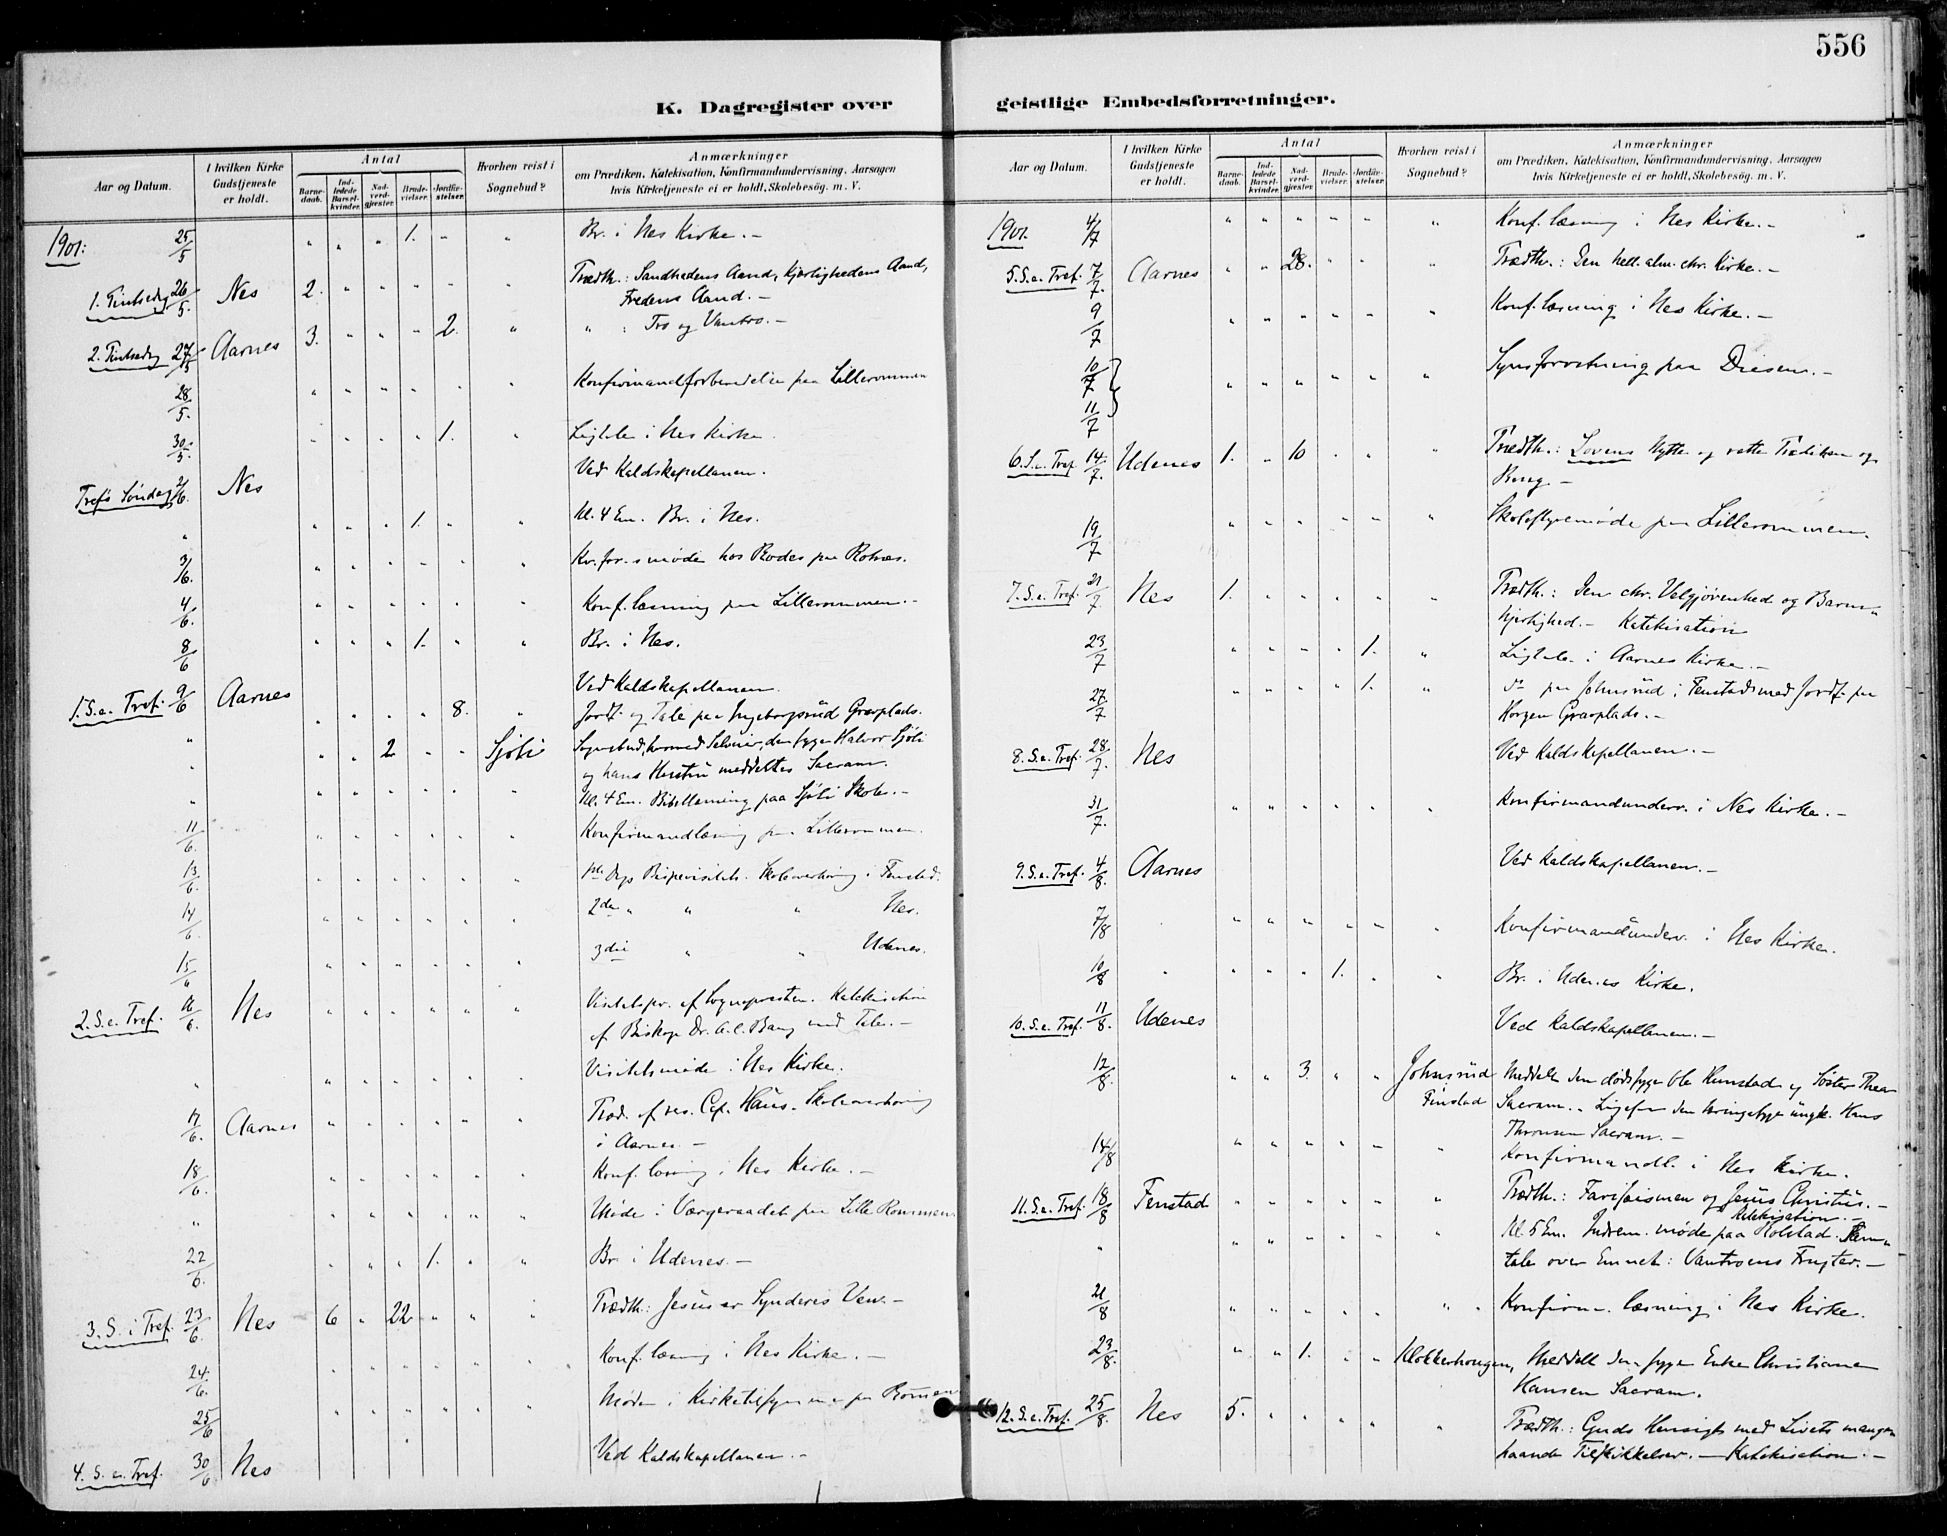 556
K. Dagregister over
geistlige Embedsforretninger.
Aar og Datum.
I hvilken Kirke Gudstjeneste er holdt.
Antal
Barnedaab.
Indledede Barselkvinder.
Nadverdgjæster.
Brudevielser.
Jordfæstelser.
Hvorhen reist i Sognebud?
Anmærkninger
om Prædiken, Katekisation, Konfirmandundervisning, Aarsagen
hvis Kirketjeneste ei er holdt, Skolebesøg, m. V.
1901: 25/5 " " " 1. " " Br. i Nes Kirke. –
1. Pintsedag 26/5. Nes 2. " " " " " Prædth.: Sandhedens Aand, Kjærlighedens Aand,
Fredens Aand. –
2. Pintsedag 27/5 Aarnes 3. " " " 2. " " : Tro og Vantro. –
28/5. " " " " " " Konfirmandforberedelse paa Lillerommen
30/5. " " " " 1. " Ligtale i Nes Kirke.
Trefs Søndag 2/6. Nes Ved Kaldskapellanen.
" " " " 1. " " Kl. 4 Em. Br. i Nes.
3/6. " " " " " " Kv.for.smøde hos Rodes paa Rotnæs.
4/6. " " " " " " Konf.læsning paa Lillerommen. –
8/6 " " " 1. " " Br. i Nes.
1. S. e. Tref. 9/6 Aarnes Ved Kaldskapellanen.
" " " " " 8. " Jordf. og Tale paa Ingeborgsrud Gravplads.
" " " 2 " " Sjøli Sognebud, hvorved Selveier, den syge Halvor Sjøli
og hans Hustru meddeltes Sacram.
" " " " " " " Kl. 4 Em. Bibellæsning paa Sjøli Skole. –
11/6. " " " " " " Konfirmandlæsning paa Lillerommen.
13/6. 1ste Dags Bispevisitats. Skoleoverhøring i Fenstad.
14/6. " " " " " " 2den " " " Nes.
15/6 " " " " " " 3die " " Udenes.
2. S. e. Tref. 16/6. Nes " " " " " " Visitatspr. af Sognepresten. Katekisation
af Biskop Dr. A. C. Bang med Tale. –
" " " " " " " Visitatsmøde i Nes Kirke.
17/6. Aarnes " " " " " " Præd. af res. Cap. Haus. Skoleoverhøring
i Aarnes –
18/6. " " " " " " Konf.læsning i Nes Kirke. –
" " " " " " " Møde i Værgeraadet paa Lille Rommen
22/6. " " " 1. " " Br. i Udenes. –
3. S. i Tref. 23/6. Nes 6 " 22 " " " Prædth.: Jesus er Synderes Ven. –
24/6. " " " " " " Konf.læsning i Nes Kirke. –
25/6 " " " " " " Møde i Kirketilsynet paa Romen
4. S. e. Tref. 30/6 Nes Ved Kaldskapellanen. –
Aar og Datum.
I hvilken Kirke Gudstjeneste er holdt.
Antal
Barnedaab.
Indledede Barselkvinder.
Nadverdgjæster.
Brudevielser.
Jordfæstelser.
Hvorhen reist i Sognebud?
Anmærkninger
om Prædiken, Katekisation, Konfirmandundervisning, Aarsagen
hvis Kirketjeneste ei er holdt, Skolebesøg, m. V.
1901. 4/7 " " " " " " Konf.læsning i Nes Kirke. –
5. S. e. Tref. 7/7. Aarnes " " 28. " " " Prædth.: Den hell. alm. chr. Kirke. –
9/7 " " " " " " Konf.læsning i Nes Kirke. –
10/7 } " " " " " " Synsforretning paa Diesen. –
11/7
6. S. e. Tref. 14/7. Udenes 1. " 10 " " " Prædth.: Lovens Nytte og rette Prædiken og
Brug. –
19/7 " " " " " " Skolestyremøde paa Lillerommen.
7. S. e. Tref. 21/7 Nes 1. " " " " " Prædth.: Den chr. Velgjørenhed og Barm-
hjertighed. – Katekisation
23/7 " " " " 1. " Ligtale i Aarnes Kirke. –
27/7 " " " " 1. " do paa Johnsrud i Fenstad med Jordf. paa
Horgen Gravplads. –
8. S. e. Tref. 28/7. Nes Ved Kaldskapellanen. –
31/7. " " " " " " Konfirmandunderv. i Nes Kirke. –
9. S. e. Tref. 4/8. Aarnes Ved Kaldskapellanen. –
7/8 " " " " " " Konfirmandunderv. i Nes Kirke.
10/8 " " " 1. " " Br. i Udenes Kirke.
10. S. e. Tref. 11/8. Udenes Ved Kaldskapellanen. –
12/8. " " 3. " " Johnsrud Fenstad Meddelt den dødssyge Ole Hunstad og Søster Thea
Sacram. Ligesaa den bringesyge ungk. Hans
Thronsen Sacram. –
14/8 " " " " " " Konfirmandl. i Nes Kirke.
11. S. e. Tref. 18/8 Fenstad " " " " " " Prædth.: Farisæismen og Jesus Christus. –
Katekisation. –
" " " " " " " Kl. 5 Em. Indrem. møde paa Rolstad. Sam-
tale over Emnet: Vantroens Frugter. –
21/8 " " " " " " Konfirm. læsning i Nes Kirke.
23/8. " " 1. " " Klokkerhougen, Meddelt den syge Enke Christiane
Hansen Sacram.
12. S. e. Tref. 25/8. Nes 5. " " " " " Prædth.: Guds Hensigt med Livets mange-
haande Tilskikkelser. – Katekisation. –